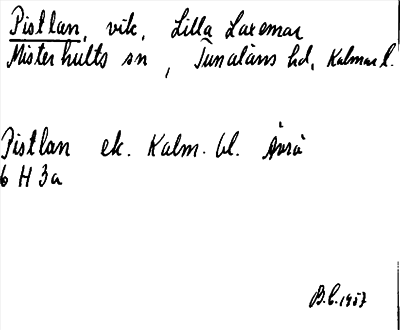 Pistlan, vik, Lilla Laxemar
Misterhults sn, Tunaläns hd, Kalmar l.
Pistlan ek. Kalm. bl. Ävrö
6 H 3a
B.C. 1957